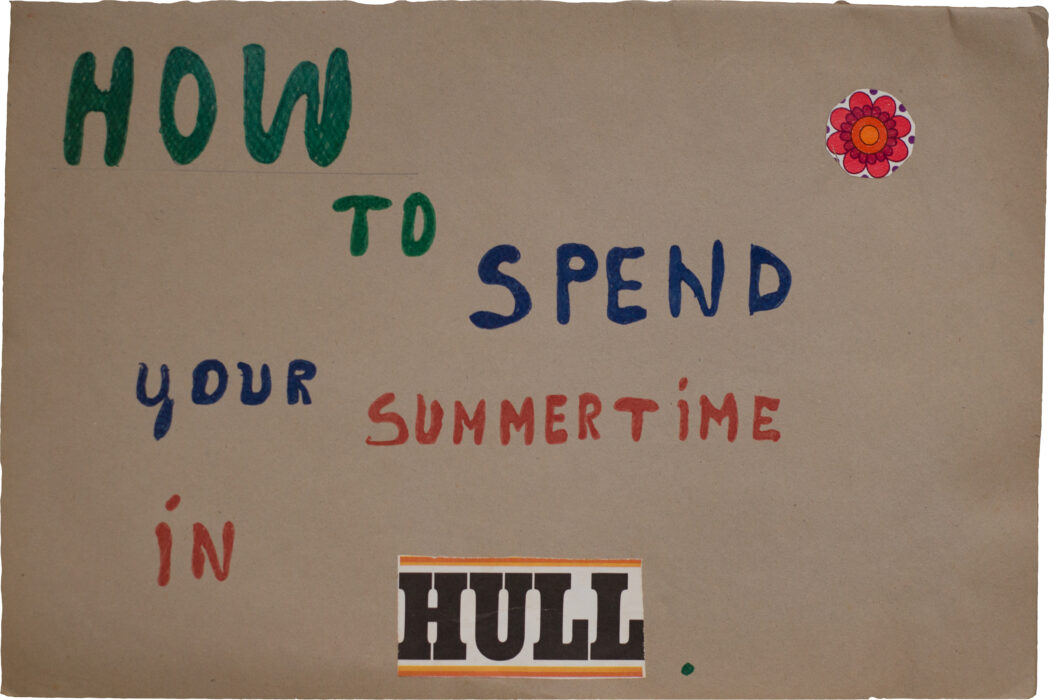 HOW
TO
SPEND
YOUR SUMMERTiME
iN
HULL.